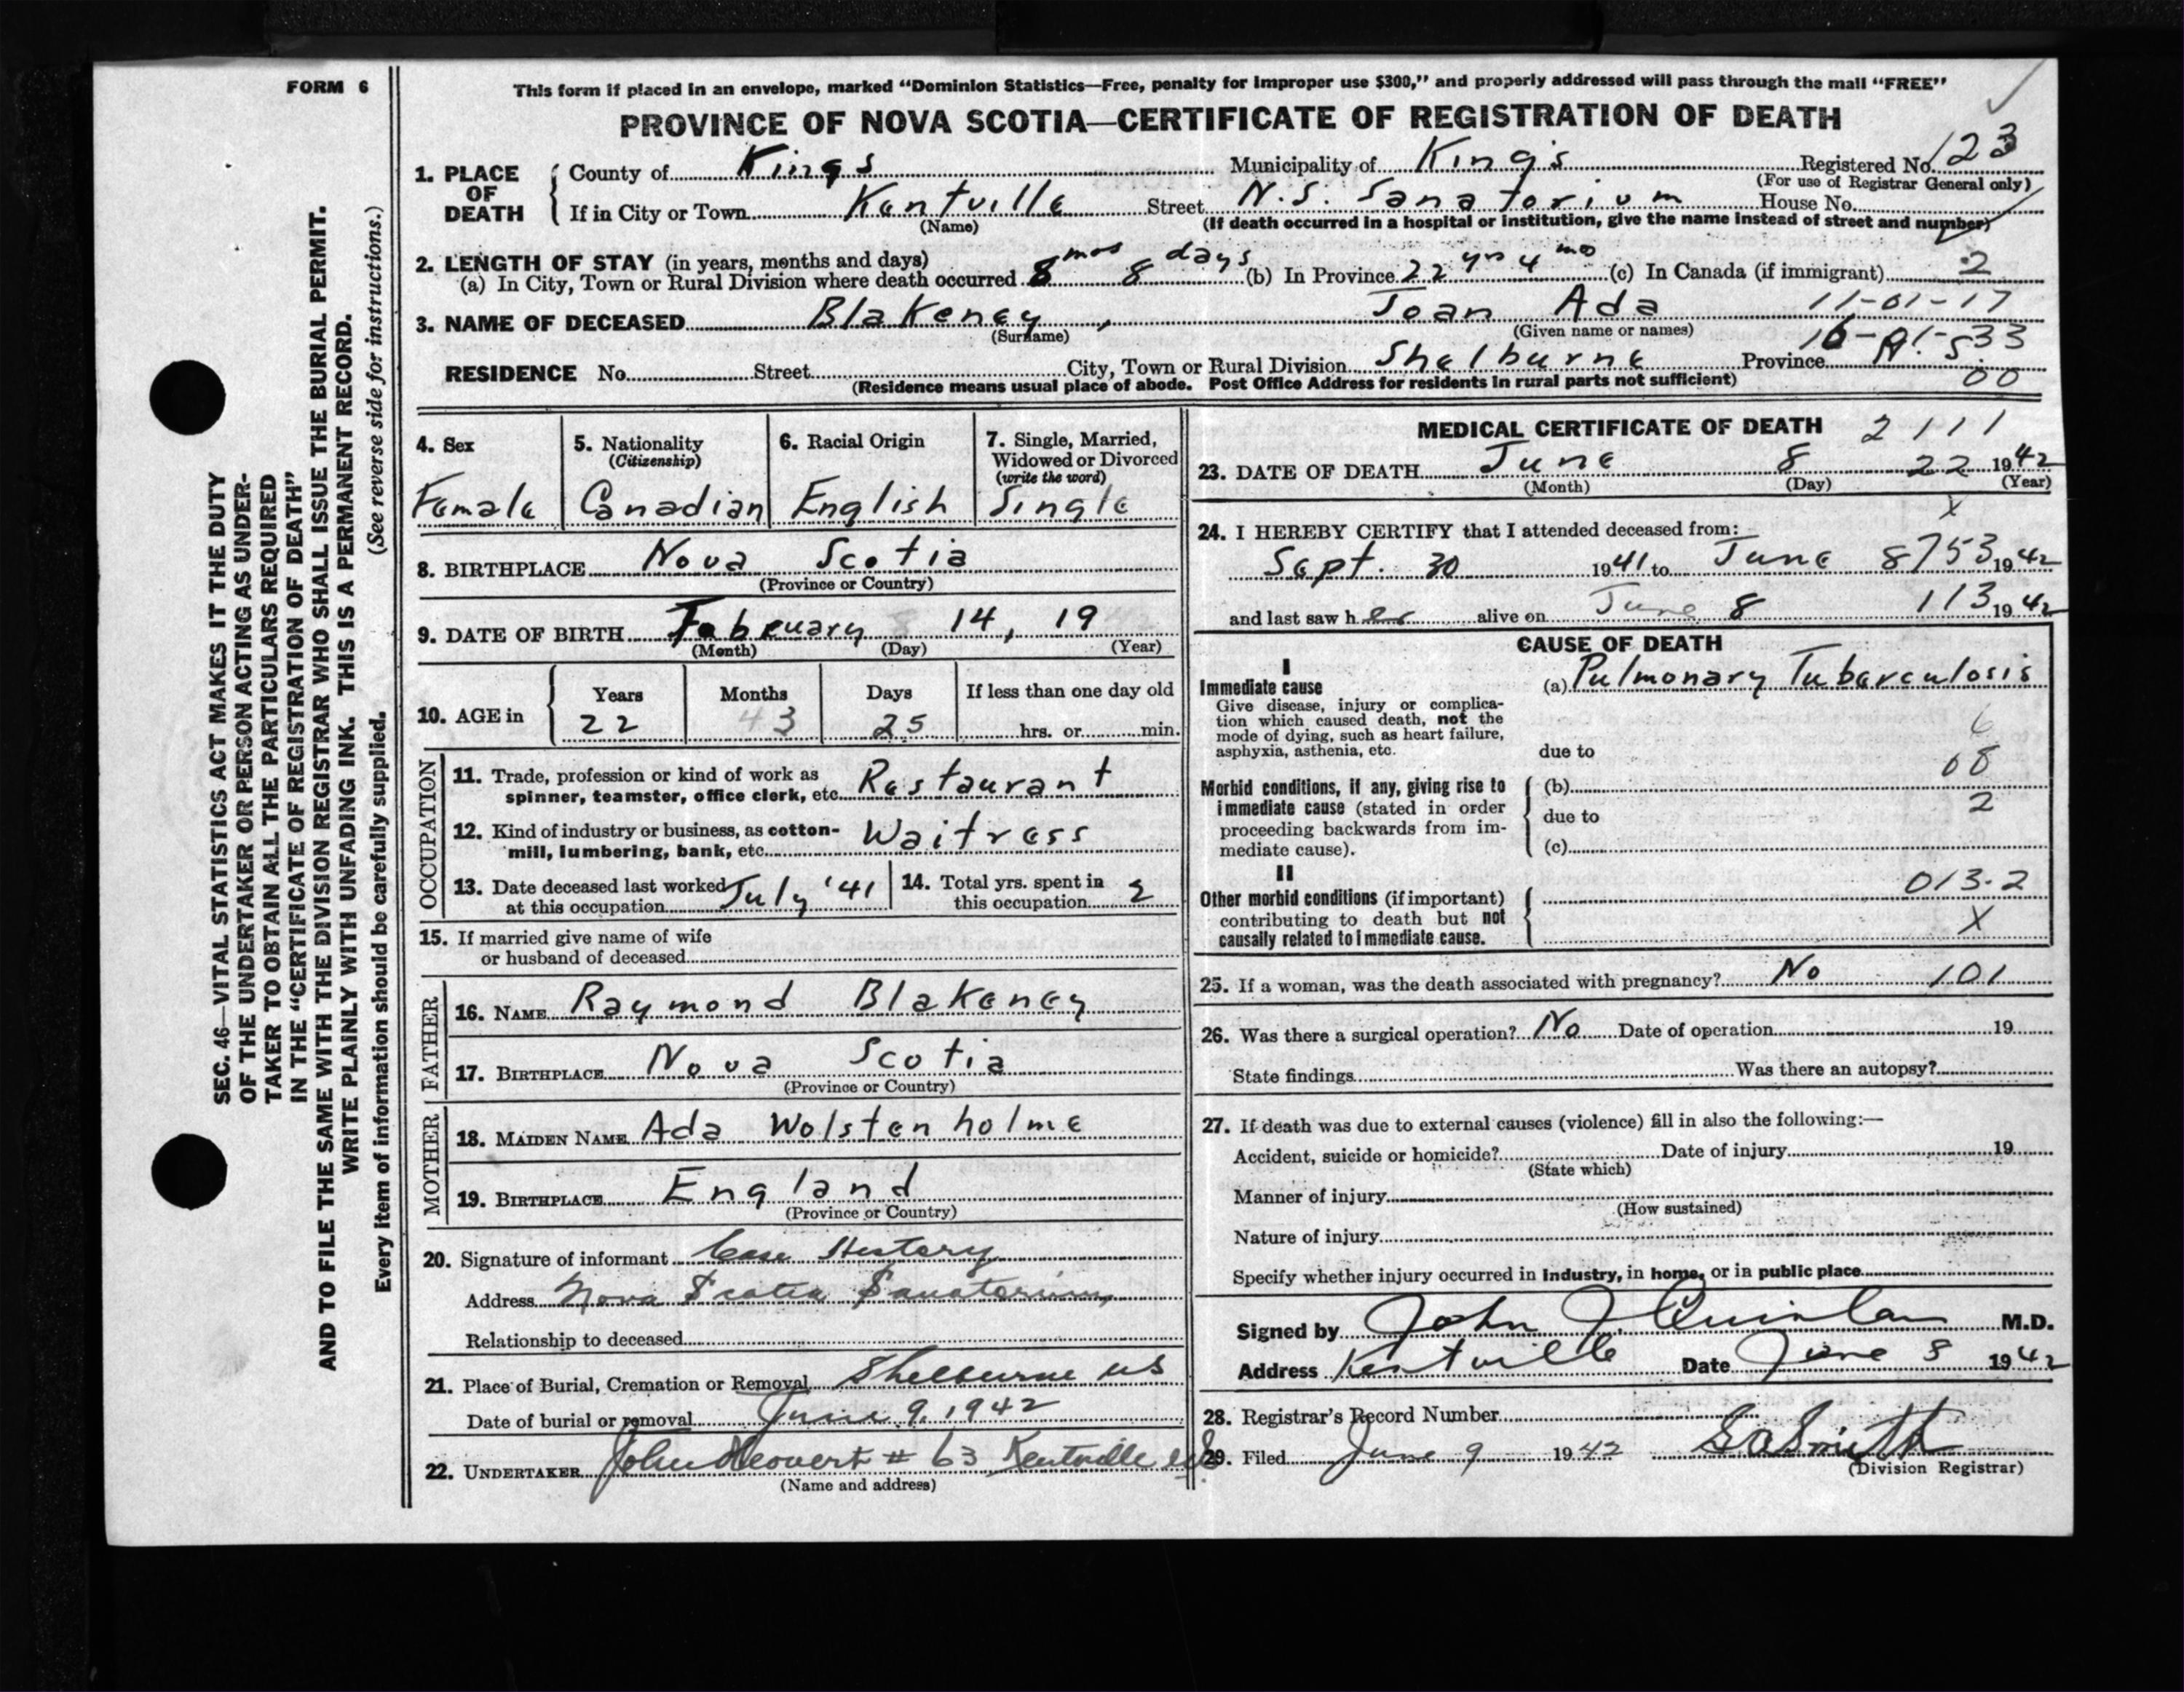 FORM 6
This form if placed in an envelope, marked "Dominion Statistics—Free, penalty for improper use $300," and properly addressed will pass through the mail "FREE"
PROVINCE OF NOVA SCOTIA—CERTIFICATE OF REGISTRATION OF DEATH
SEC. 46—VITAL STATISTICS ACT MAKES IT THE DUTY
OF THE UNDERTAKER OR PERSON ACTING AS UNDER-
TAKER TO OBTAIN ALL THE PARTICULARS REQUIRED
IN THE "CERTIFICATE OF REGISTRATION OF DEATH"
AND TO FILE THE SAME WITH THE DIVISION REGISTRAR WHO SHALL ISSUE THE BURIAL PERMIT.
WRITE PLAINLY WITH UNFADING INK. THIS IS A PERMANENT RECORD.
Every item of information should be carefully supplied. (See reverse side for instructions.)
1. PLACE OF DEATH County of Kings Municipality of King's Registered No. 123
(For use of Registrar General only)
If in City or Town Kentville Street N.S. Sanatorium House No.
(Name) (If death occurred in a hospital or institution, give the name instead of street and number)
2. LENGTH OF STAY (in years, months and days)
(a) In City, Town or Rural Division where death occurred 8 mos 8 days (b) In Province 22 yrs 4 mo (c) In Canada (if immigrant) 2
11-01-17
3. NAME OF DECEASED Blakeney, Joan Ada
(Surname) (Given name or names) 16-01-533
RESIDENCE No. Street City, Town or Rural Division Shelburne Province N.S.
(Residence means usual place of abode. Post Office Address for residents in rural parts not sufficient) 00
4. Sex Female
5. Nationality (Citizenship) Canadian
6. Racial Origin English
7. Single, Married, Widowed or Divorced (write the word) Single
8. BIRTHPLACE Nova Scotia
(Province or Country)
9. DATE OF BIRTH February 14, 19
(Month) (Day) (Year)
10. AGE in Years 22 Months 3 Days 25 If less than one day old hrs. or min.
OCCUPATION
11. Trade, profession or kind of work as
spinner, teamster, office clerk, etc. Restaurant
12. Kind of industry or business, as cotton-
mill, lumbering, bank, etc. Waitress
13. Date deceased last worked at this occupation July '41
14. Total yrs. spent in this occupation 2
15. If married give name of wife
or husband of deceased
FATHER
16. NAME Raymond Blakeney
17. BIRTHPLACE Nova Scotia
(Province or Country)
MOTHER
18. MAIDEN NAME Ada Wolstenholme
19. BIRTHPLACE England
(Province or Country)
20. Signature of informant Case History
Address Nova Scotia Sanatorium,
Relationship to deceased
21. Place of Burial, Cremation or Removal Shelburne NS
Date of burial or removal June 9, 1942
22. UNDERTAKER John # 63 Kentville
(Name and address)
MEDICAL CERTIFICATE OF DEATH 2111
23. DATE OF DEATH June 8 22 1942
(Month) (Day) (Year)
X
24. I HEREBY CERTIFY that I attended deceased from:
Sept. 30 1941 to June 8 753 1942
and last saw her alive on June 8 113 1942
CAUSE OF DEATH
I
Immediate cause
Give disease, injury or complica-
tion which caused death, not the
mode of dying, such as heart failure,
asphyxia, asthenia, etc.
(a) Pulmonary Tuberculosis
6
due to
08
Morbid conditions, if any, giving rise to
immediate cause (stated in order
proceeding backwards from im-
mediate cause).
(b)
due to 2
(c)
II
Other morbid conditions (if important)
contributing to death but not
causally related to immediate cause.
013.2
X
25. If a woman, was the death associated with pregnancy? No 101
26. Was there a surgical operation? No Date of operation 19
State findings Was there an autopsy?
27. If death was due to external causes (violence) fill in also the following:—
Accident, suicide or homicide? Date of injury 19
(State which)
Manner of injury
(How sustained)
Nature of injury
Specify whether injury occurred in industry, in home, or in public place
Signed by John J Quinlan M.D.
Address Kentville Date June 8 1942
28. Registrar's Record Number
29. Filed June 9 1942 Smith
(Division Registrar)